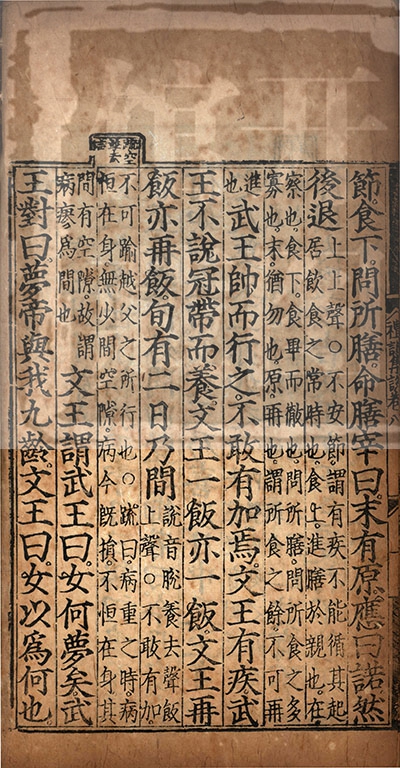 節食下問所膳命膳宰曰末有原應曰諾然
後退
上上聲○不安節謂有疾不能循其起
居飲食之常時也食上進膳於親也在
察也食下食畢而徹也問所膳問所食之多
寡也末猶勿也原再也謂所食之餘不可再
進
也
武王帥而行之不敢有加焉文王有疾武
王不說冠帶而養文王一飯亦一飯文王再
飯亦再飯旬有二日乃間
說音脫養去聲飯
上聲○不敢有加
不可踰越父之所行也○疏曰病重之時病
恒在身無少間空隙病今旣損不恒在身其
間有空隙故謂
病瘳爲間也
文王謂武王曰女何夢矣武
王對曰夢帝與我九齡文王曰女以爲何也